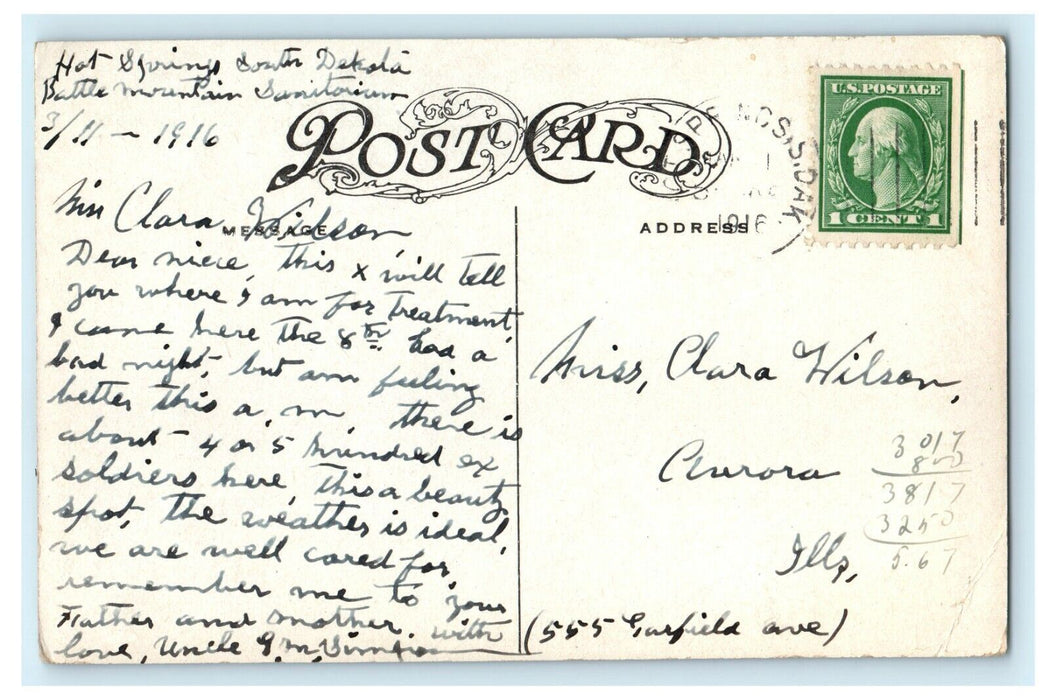 Hot Springs South Dakota
Battle Mountain Sanitorium
3/11 - 1916
POST CARD
MESSAGE
Miss Clara Wilson,
Dear niece, this x will tell
you where I am for treatment,
I came here the 8th. had a
bad night, but am feeling
better this a.m. there is
about - 4 or 5 hundred ex
soldiers here, this a beauty
spot, the weather is ideal,
we are well cared for,
remember me to your
Father and mother. with
love, Uncle G.M.
ADDRESS
S.DAK.
1916
U.S. POSTAGE
1 CENT 1
Miss, Clara Wilson,
Aurora
Ills,
(555 Garfield ave)
3017
800
3817
3250
5.67